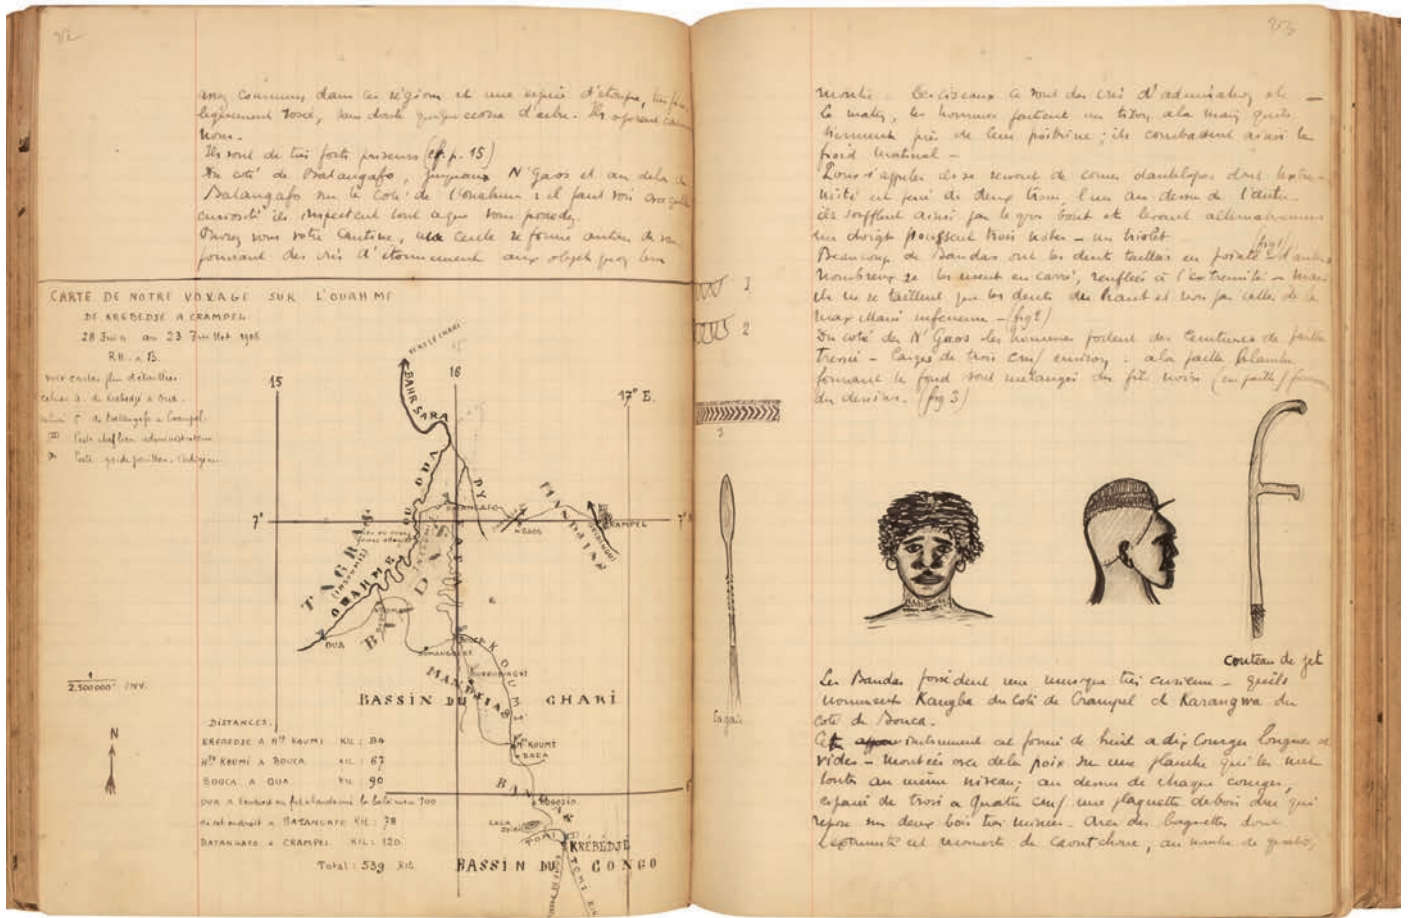 assez communs dans ces régions et une espèce d'étoupe, très
légèrement rosé, sans doute quelque écorce d'arbre. Ils
nom.
Ils sont de très forts priseurs (cf. p. 15)
Du coté de Batangafo, jusquaux N'Gaos et au dela de
Batangafo sur le coté de l'Ouahm : il faut voir avec quelle
curiosité ils inspectent tout ce que vous possedez.
Ouvrez vous votre cantine, un cercle se forme autour de vous
poussant des cris d'étonnement aux objets que
CARTE DE NOTRE VOYAGE SUR L'OUAHME
DE KREBEDJE A CRAMPEL
28 Juin au 23 Juillet
R.H. a B.
voir cartes plus détaillées
cahier 4. de Krebedje a Oua.
cahier 5 de Batangafo a Crampel.
Poste chef lieu administration
Poste garde pavillon indigène
15
16
17° E.
7°
7°
BAHR SARA
OUAHME
OUA
DY
TAGBA
MANDJIA
BATANGAFO
N'GAOS
CRAMPEL
OUA
BOUCA
MANDJIAS
BASSIN DU CHARI
Hte KOUMI
KRÉBÉDJÉ
BASSIN DU CONGO
1
2.500000e ENV.
N
DISTANCES.
KREBEDJE A Hte KOUMI KIL : 84
Hte KOUMI A BOUCA KIL : 67
BOUCA A OUA KIL : 90
100
de cet endroit a BATANGAFO KIL : 78
BATANGAFO a CRAMPEL KIL : 120
Total : 539 KIL
253
montre. Les ciseaux ce sont des cris d'admiration etc —
Le matin, les hommes portent un tison a la main quils
tiennent près de leur poitrine ; ils combattent ainsi le
froid matinal —
Pour s'appeler ils se servent de cornes d'antilopes dont l'extre-
mité est percé de deux trous, l'un au dessus de l'autre.
ils soufflent ainsi par le gros bout et levant alternativement
un doigt poussent trois notes — un triolet
Beaucoup de Bandas ont les dents taillées en pointe (fig 1) d'autres
nombreux se les usent en carré, renflées à l'extremité — Mais
ils ne se taillent que les dents du haut et non pas celles de la
maxillaire inferieure — (fig 2)
Du coté des N'Gaos les hommes portent des ceintures de paille
tressé — larges de trois cm/ environ : a la paille blanche
formant le fond sont mélangés des fils noirs (en paille)
du dessins. (fig 3)
1
2
3
Sagaie
couteau de jet
Les Bandas possèdent une musique très curieuse — quils
nomment Kangba du coté de Crampel et Karangwa du
coté de Bouca.
instrument est formé de huit a dix courges longues et
vides — montées avec de la poix sur une planche qui les met
toutes au même niveau ; au dessus de chaque courges,
espacé de trois a quatre cm/ une plaquette de bois dur qui
repose sur deux bois très minces. Avec des baguettes dont
l'extremité est recouverte de caoutchouc, au nombre de quatre,